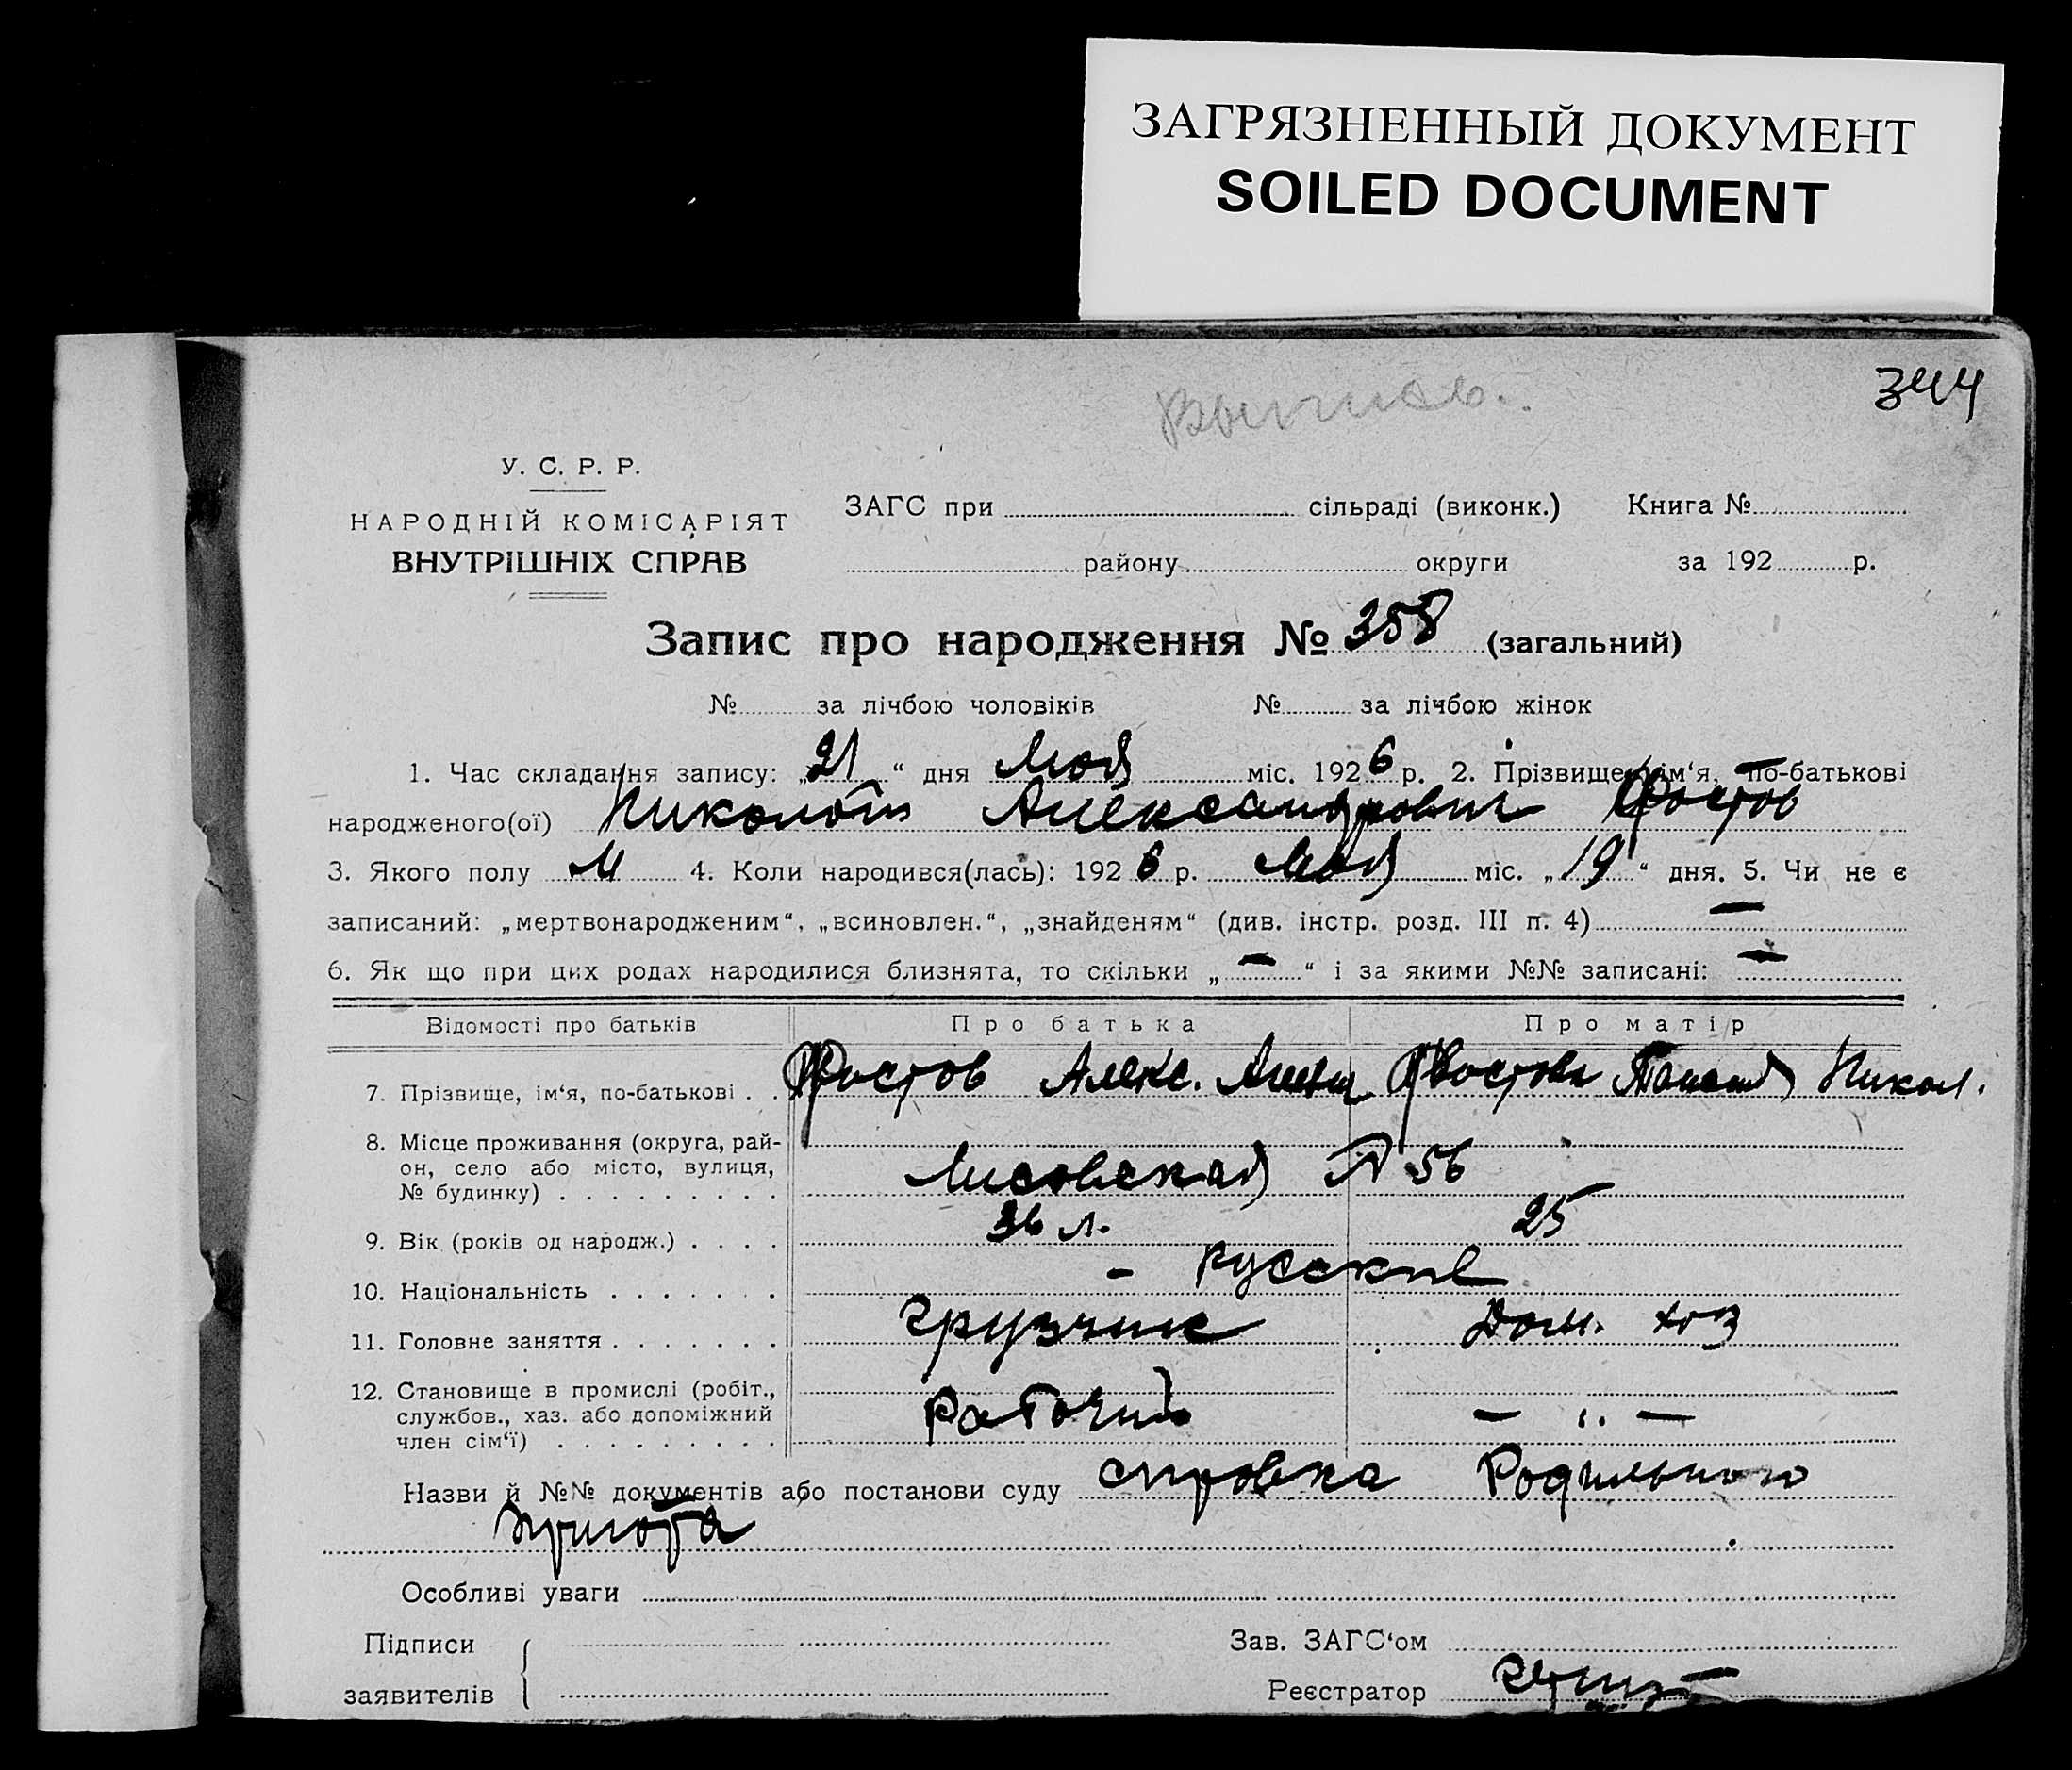 ЗАГРЯЗНЕННЫЙ ДОКУМЕНТ
SOILED DOCUMENT
344
У. С. Р. Р.
НАРОДНІЙ КОМІСАРІЯТ
ВНУТРІШНІХ СПРАВ
ЗАГС при сільраді (виконк.) Книга №
району округи за 192 р.
Запис про народження № 358 (загальний)
№ за лічбою чоловіків № за лічбою жінок
1. Час складання запису: „21“ дня Мая міс. 1926 р. 2. Прізвище, ім‘я, по-батькові
народженого(ої) Николай Александрович
3. Якого полу М 4. Коли народився(лась): 1926 р. Мая міс. „19“ дня. 5. Чи не є
записаний: „мертвонародженим“, „всиновлен.“, „знайденям“ (див. інстр. розд. III п. 4) —
6. Як що при цих родах народилися близнята, то скільки „—“ і за якими №№ записані: —
Відомості про батьків Про батька Про матір
7. Прізвище, ім‘я, по-батькові . . Алекс. Никол.
8. Місце проживання (округа, рай-
он, село або місто, вулиця,
№ будинку) . . . . . . . . . Лисовская 56
9. Вік (років од народж.) . . . . 36 л. 25
10. Національність . . . . . . . – русские
11. Головне заняття . . . . . . . грузчик Дом. хоз
12. Становище в промислі (робіт.,
службов., хаз. або допоміжний
член сім‘ї) . . . . . . . . . Рабочий — „ —
Назви й №№ документів або постанови суду справка Родильного
приюта
Особливі уваги
Підписи
заявителів
Зав. ЗАГС‘ом
Реєстратор